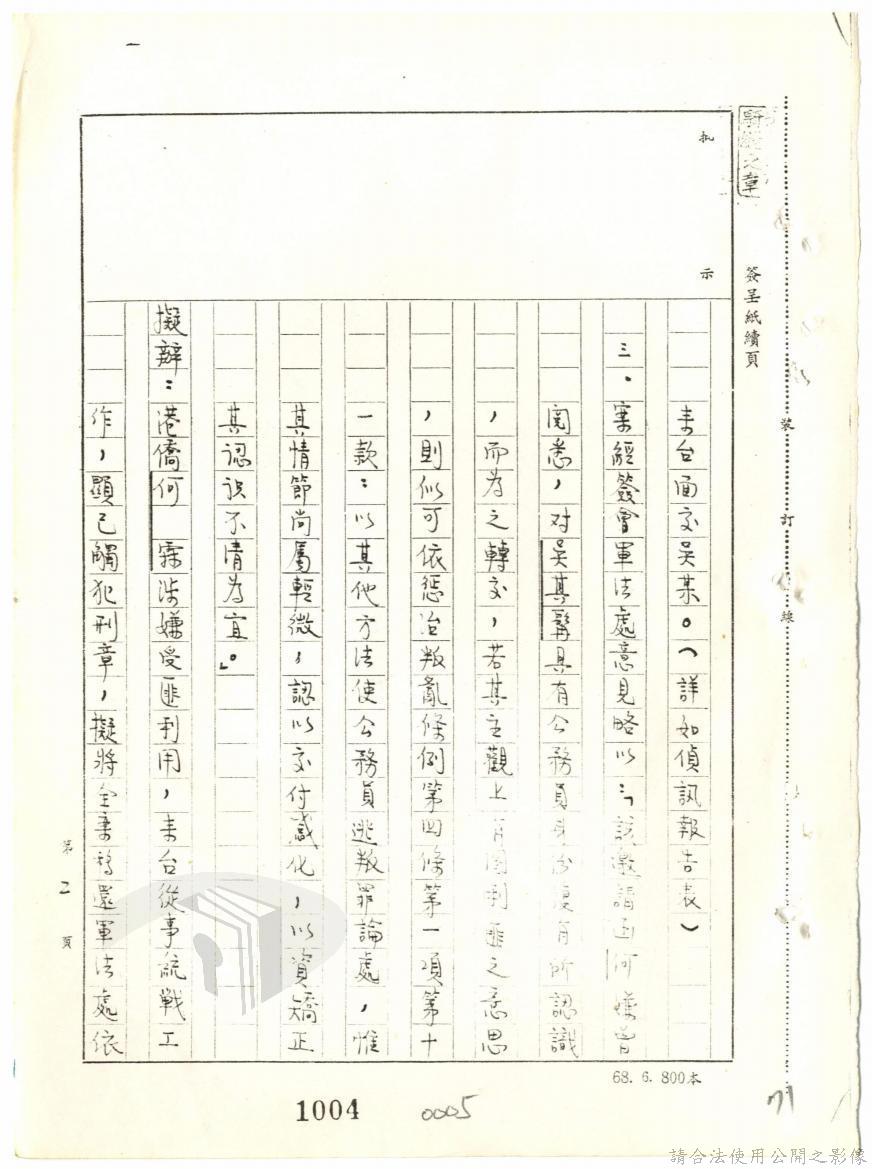 批示
簽呈紙續頁
裝訂線
來台面交吳某。(詳如偵訊報告表)
三、案經簽會軍法處意見略以:「該邀請函何嫌曾
閱悉,对吳其
具有公務員身份復有所認識
,而為之轉交,若其主觀上有圖利匪之意思
,則似可依惩治叛亂條例第四條第一項第十
一款:以其他方法使公務員逃叛罪論處,惟
其情節尚屬輕微,認以交付感化,以資矯正
其認識不清為宜」。
擬辦:港僑何 霖涉嫌受匪利用,來台從事統戰工
作,顯已觸犯刑章,擬將全案移還軍法處依
第2頁
68. 6. 800本
1004
0005
71
請合法使用公開之影像